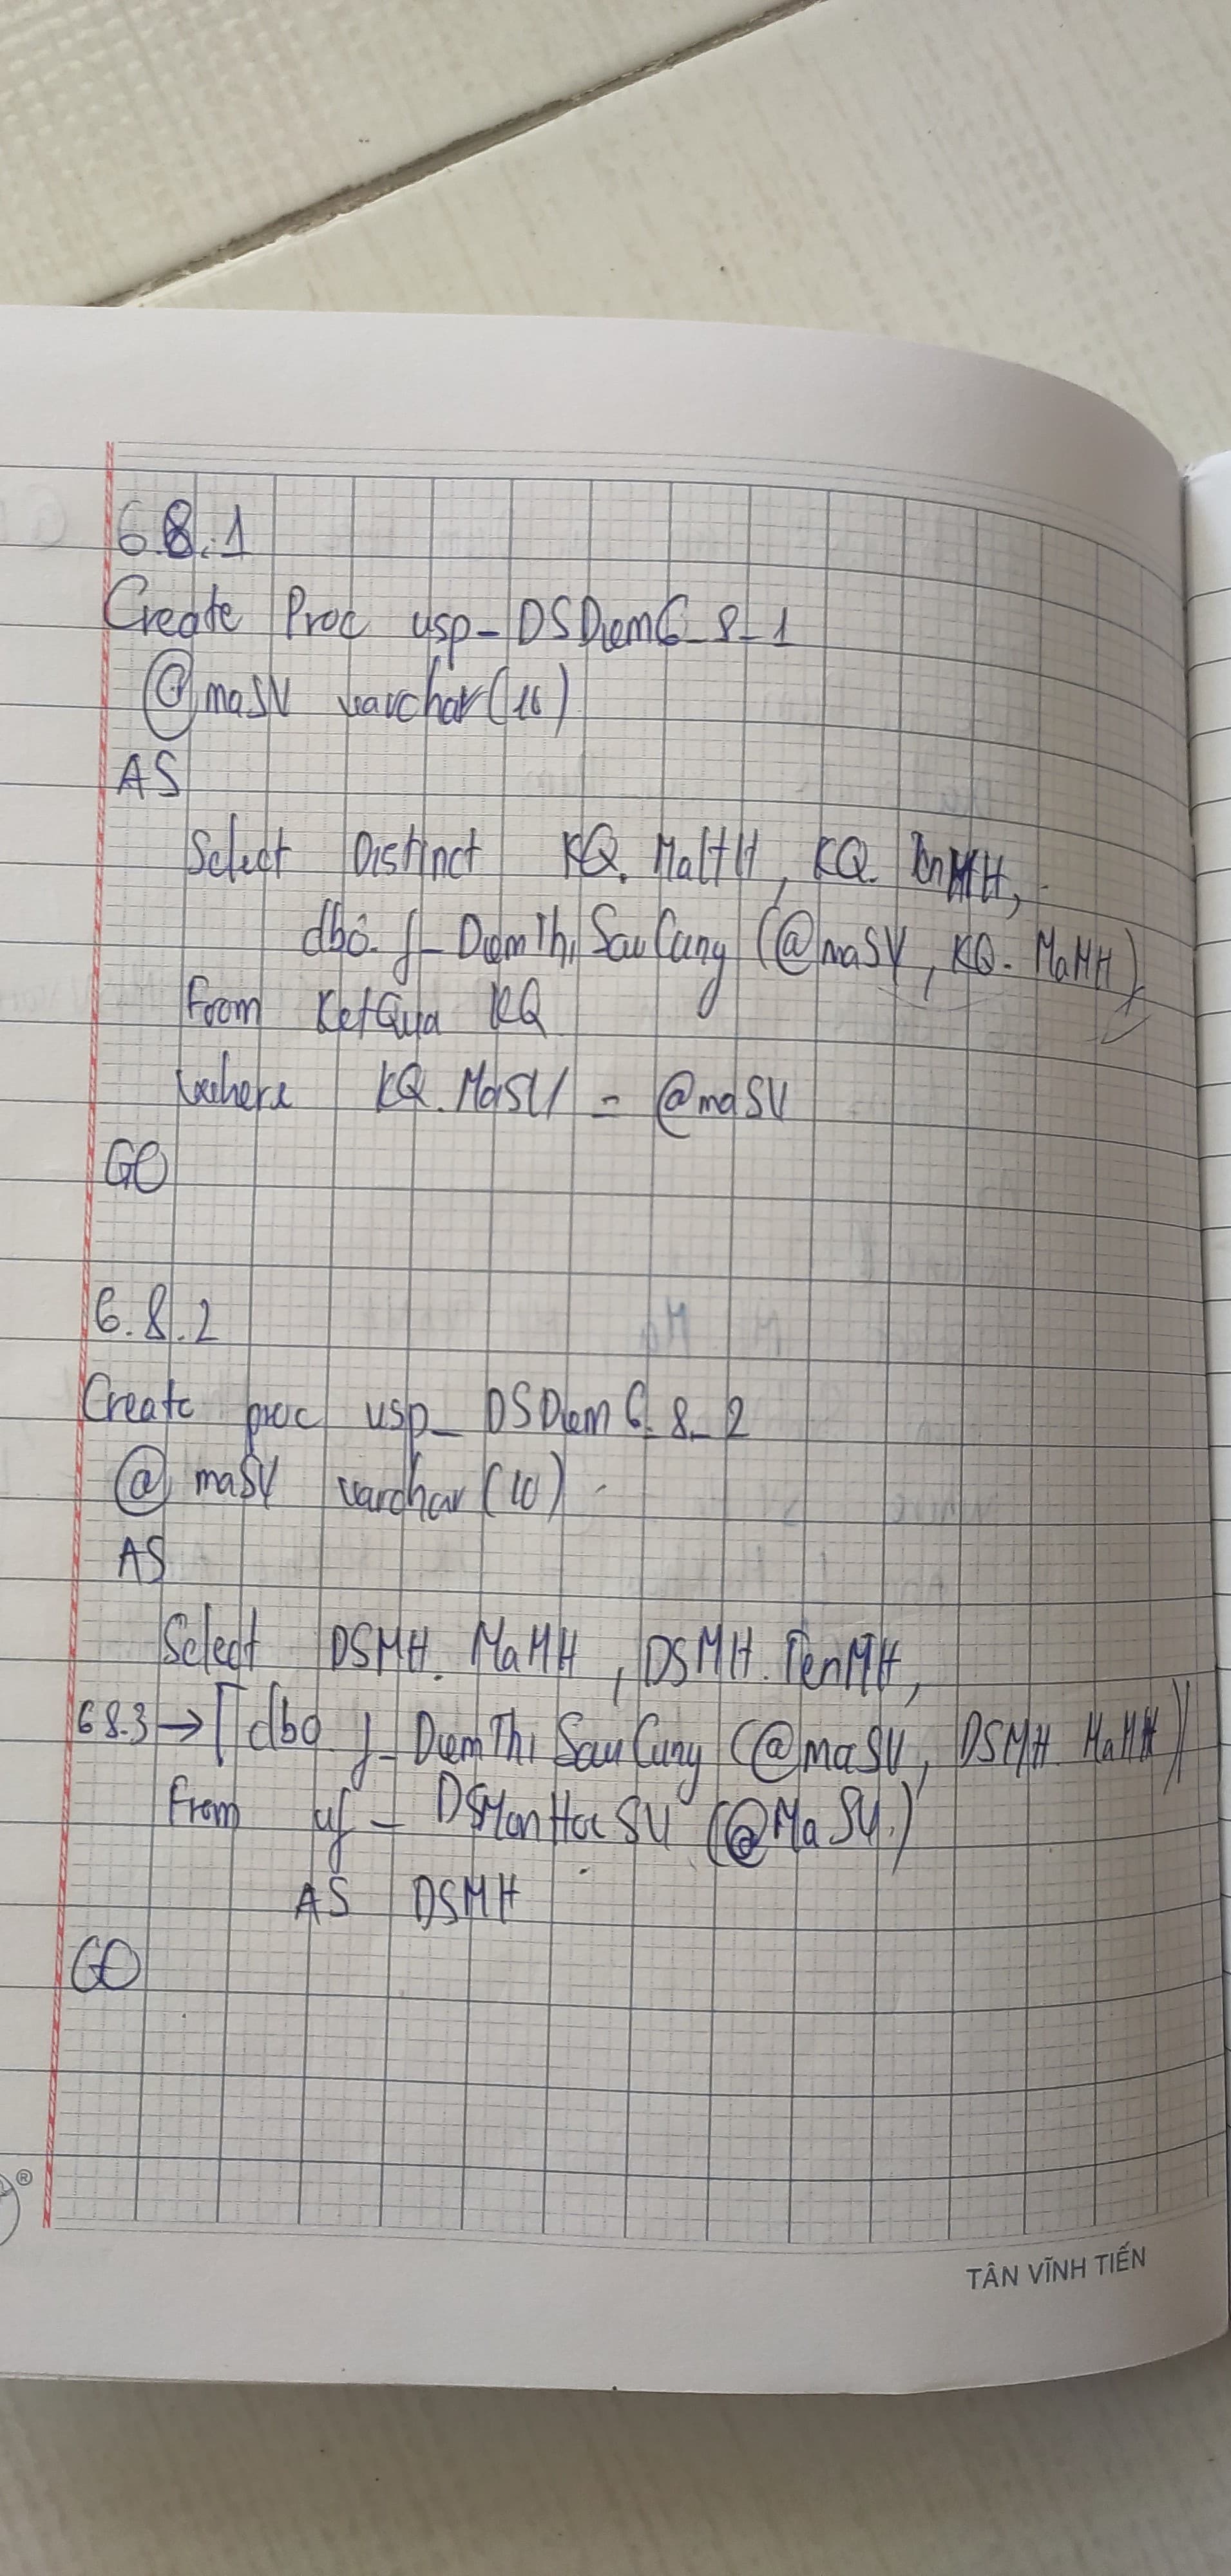 6.8.1
Create Proc usp_DSDiem6_8_1
@maSV varchar(10)
AS
Select Distinct KQ.MaMH, KQ.TenMH,
dbo.f_DiemThiSauCung (@maSV, KQ.MaMH)
From KetQua KQ
Where KQ.MaSV = @maSV
GO
6.8.2
Create proc usp_DSDiem6_8_2
@maSV varchar(10)
AS
Select DSMH.MaMH, DSMH.TenMH,
6.8.3 → [dbo f_DiemThiSauCung (@maSV, DSMH.MaMH)
From uf_DSMonHocSV (@MaSV)
AS DSMH
GO
®
TÂN VĨNH TIẾN